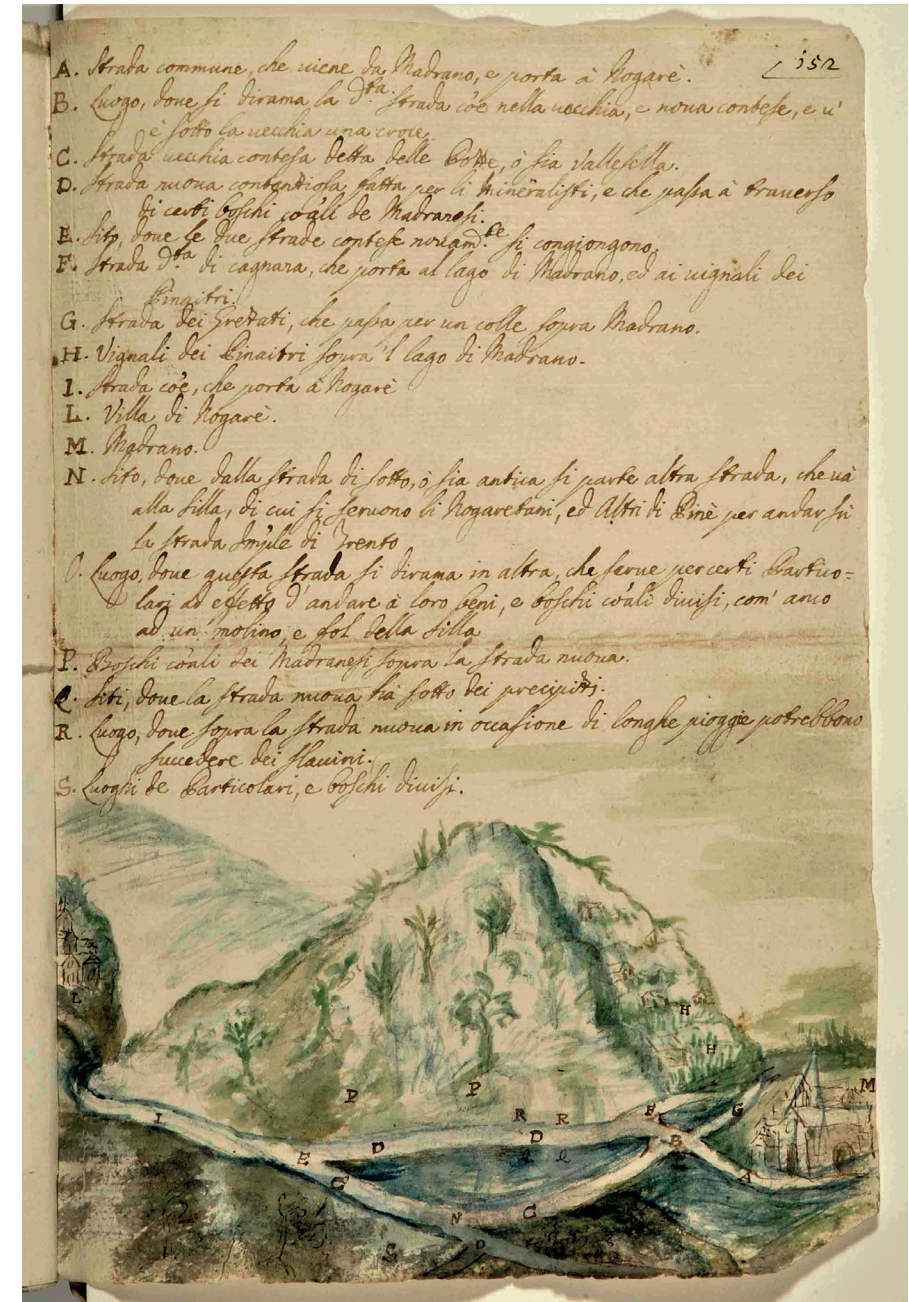 152
A. Strada commune, che viene da Madrano, e porta à Nogarè.
B. Luogo, dove si dirama la d.ta strada cõe nella vecchia, e nova contese, e v'
è sotto la vecchia una croce.
C. Strada vecchia contesa detta delle Potte, ò sia Vallesella.
D. Strada nuova contentiosa fatta per li Mineralisti, e che passa à traverso
di certi boschi cõali de Madranesi.
E. Sito, dove le due strade contese novam.te si congiongono.
F. Strada d.ta di cagnara, che porta al lago di Madrano, ed ai vignali dei
Pinaitri.
G. Strada dei Grettati, che passa per un colle sopra Madrano.
H. Vignali dei Pinaitri sopra 'l lago di Madrano.
I. Strada cõe, che porta à Nogarè
L. Villa di Nogarè.
M. Madrano.
N. Sito, dove dalla strada di sotto, ò sia antica si parte altra strada, che và
alla Silla, di cui si servono li Nogaretani, ed Altri di Pinè per andar sù
la strada Imp̃le di Trento
O. Luogo, dove questa strada si dirama in altra, che serve per certi Partico=
lari ad effetto d'andare à loro beni, e boschi cõali divisi, com' anco
ad un' molino, e fol della Silla
P. Boschi cõali dei Madranesi sopra la strada nuova.
Q. Siti, dove la strada nuova hà sotto dei precipitti.
R. Luogo, dove sopra la strada nuova in occasione di longhe pioggie potrebbono
succedere dei slavini.
S. Luoghi de Particolari, e boschi divisi.
L
H
H
M
P
P
I
R
R
F
G
D
D
B
E
Q
Q
A
C
C
N
S
O